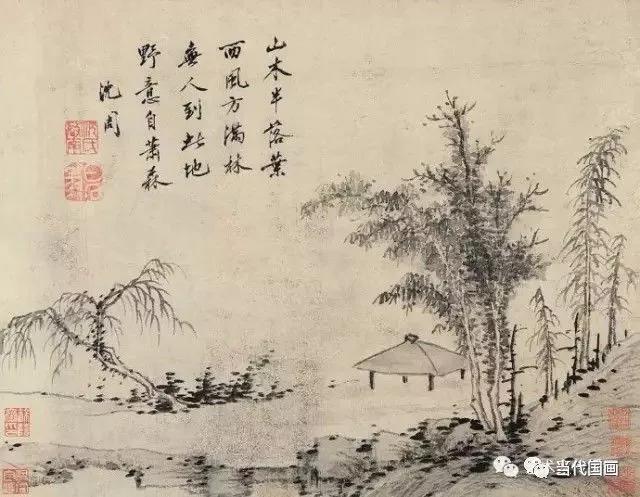 山木半落葉
西風方滿林
無人到此地
野意自蕭森
沈周
当代国画